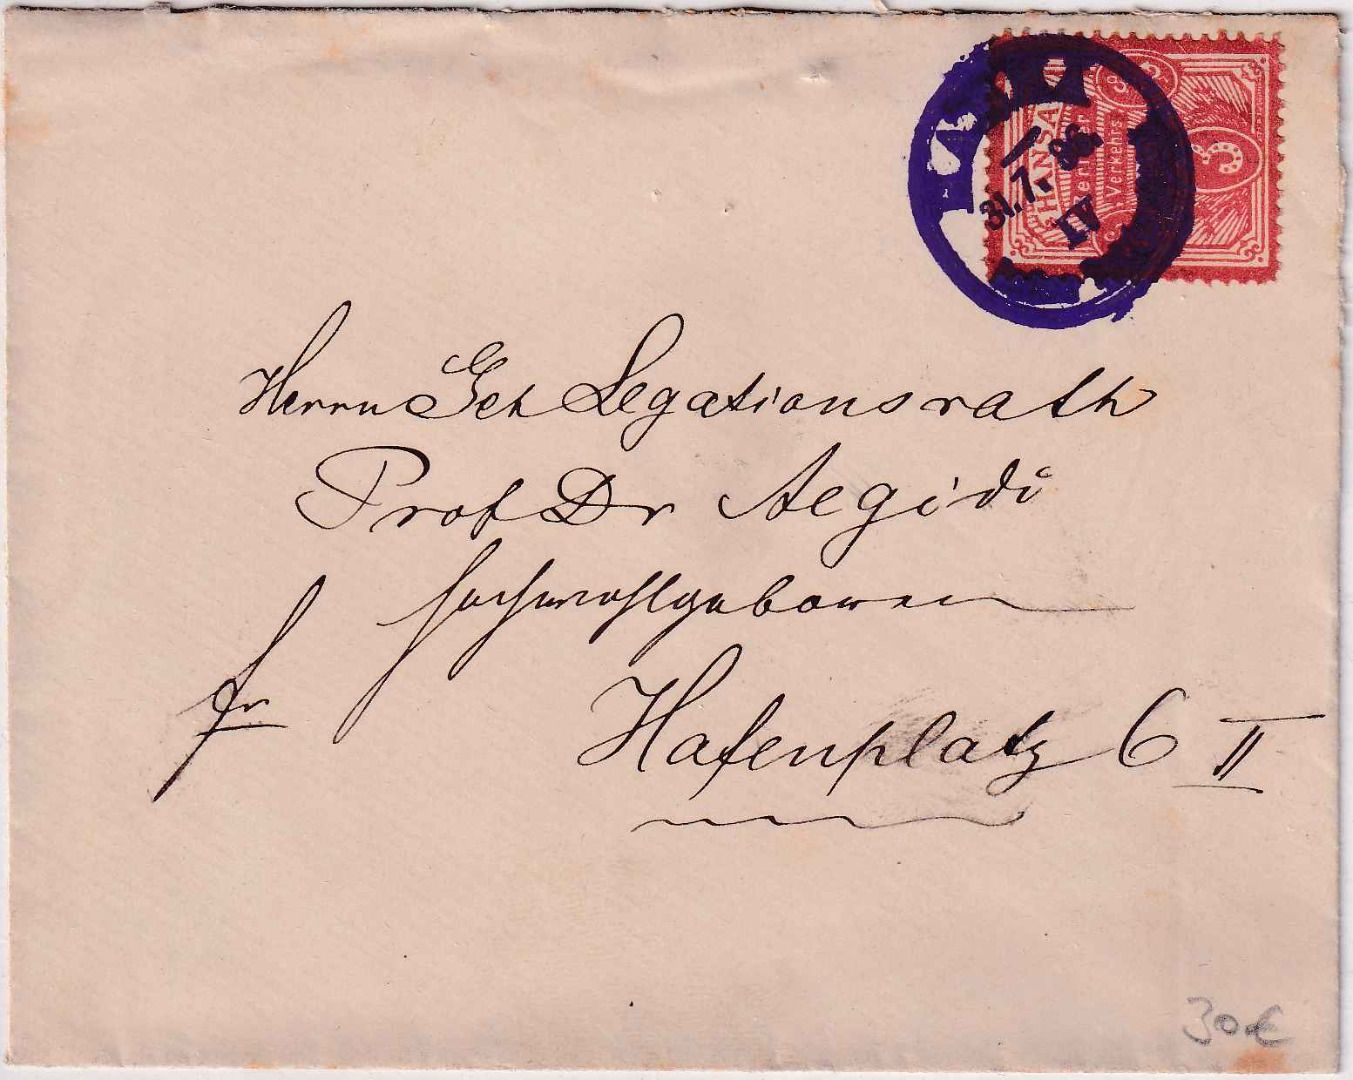 HANSA
Verkehrs
3
31.7.86.
IV
Herrn Geh Legationsrath
Prof Dr Aegidi
Hochwohlgeboren
fr
Hafenplatz 6 II
30€